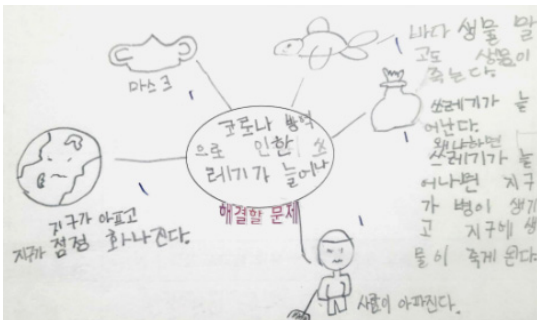 마스크
바다 생물 말
고도 생물이
죽는다.
쓰레기가 늘
어난다.
왜냐하면
쓰레기가 늘
어나면 지구
가 병이 생기
고 지구에 생
물이 죽게 된다
코로나 방역
으로 인한 쓰
레기가 늘어나
해결할 문제
지구가 아프고
지구가 점점 화나진다.
사람이 아파진다.